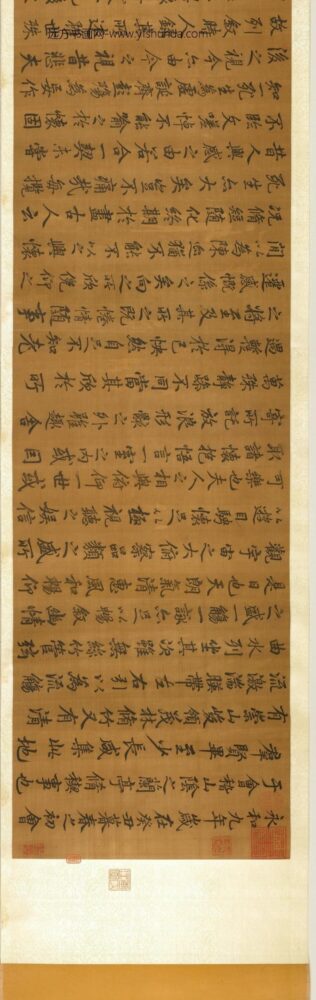 永和九年歲在癸丑暮春之初會
于會稽山陰之蘭亭脩禊事也
羣賢畢至少長咸集此地
有崇山峻領茂林脩竹又有清
流激湍暎帶左右引以為流觴
曲水列坐其次雖無絲竹管弦
之盛一觴一詠亦足以暢敘幽情
是日也天朗氣清惠風和暢仰
觀宇宙之大俯察品類之盛所
以遊目騁懷足以極視聽之娛信
可樂也夫人之相與俯仰一世或
取諸懷抱悟言一室之內或因
寄所託放浪形骸之外雖趣舍
萬殊靜躁不同當其欣於所
遇蹔得於己快然自足不知老
之將至及其所之既惓情隨事
遷感慨係之矣向之所欣俛仰之
間以為陳迹猶不能不以之興懷
況脩短隨化終期於盡古人云
死生亦大矣豈不痛哉每攬
昔人興感之由若合一契未嘗
不臨文嗟悼不能喻之於懷固
知一死生為虛誕齊彭殤為妄作
後之視今亦由今之視昔悲夫
故列敘時人錄其所述雖世殊